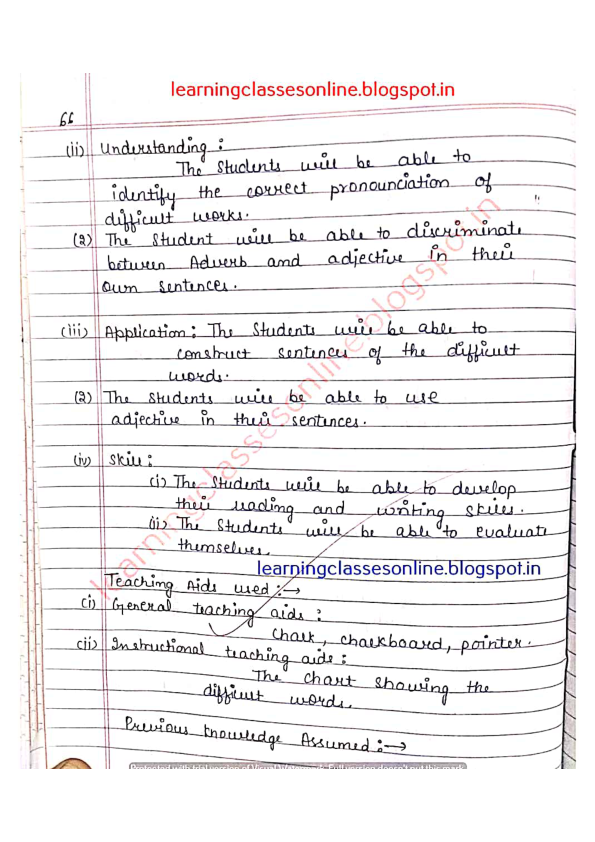 learningclassesonline.blogspot.in
66
(ii) Understanding :
The Students will be able to
identify the correct pronounciation of
difficult works.
(2) The Student will be able to discriminate
between Adverb and adjective in their
own sentences.
(iii) Application : The Students will be able to
construct sentences of the difficult
words.
(2) The students will be able to use
adjective in their sentences.
(iv) Skill :
(i) The Students will be able to develop
their reading and writing skills.
(ii) The Students will be able to evaluate
themselves.
learningclassesonline.blogspot.in
Teaching Aids used :→
(i) General teaching aids :
Chalk, chalkboard, pointer.
(ii) Instructional teaching aids :
The chart showing the
difficult words.
Previous knowledge Assumed :→
learningclassesonline.blogspot.in
Protected with trial version of Visual Watermark. Full version doesn't put this mark.